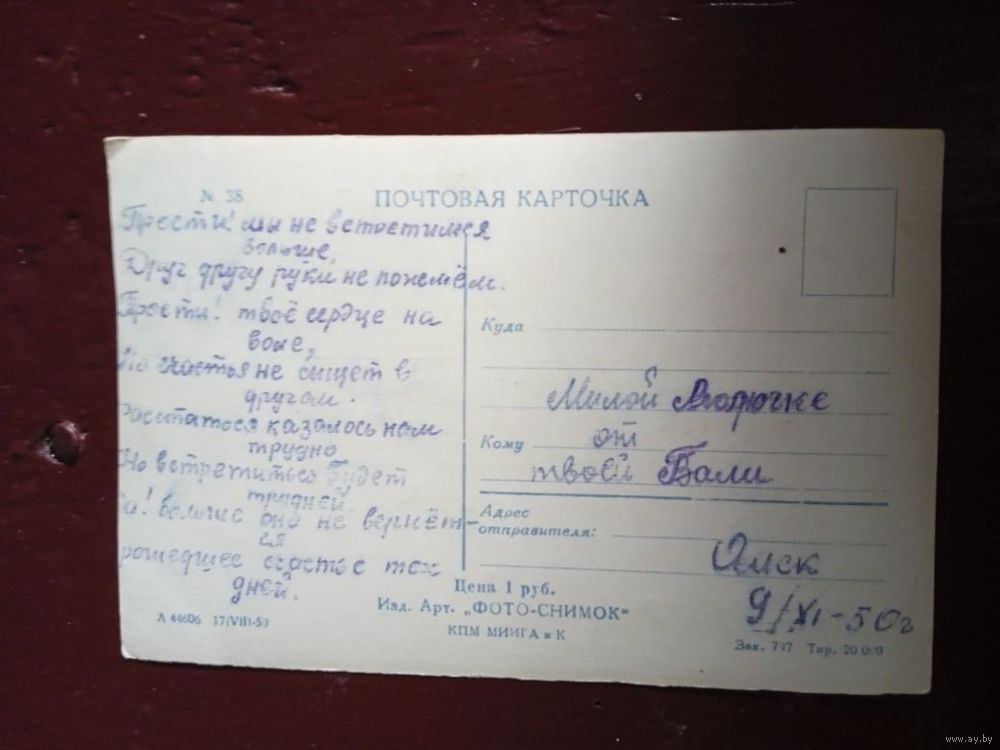 № 38
ПОЧТОВАЯ КАРТОЧКА
Прости! мы не встретимся
больше,
Друг другу руки не пожмём.
Прости! твоё сердце на
воле,
Но счастья не сыщет в
другом.
Расстаться казалось нам
трудно
Но встретиться будет
трудней.
Да! больше оно не вернёт-
ся
рошедшее счастье тех
дней.
Куда
Милой
Кому
от
твоей Вали
Адрес
отправителя:
Омск
9/XI-50г
Цена 1 руб.
Изд. Арт. „ФОТО-СНИМОК"
КПМ МИИГА и К
А 44606 17/VIII-50
Зак. 737 Тир. 20 000
www.ay.by